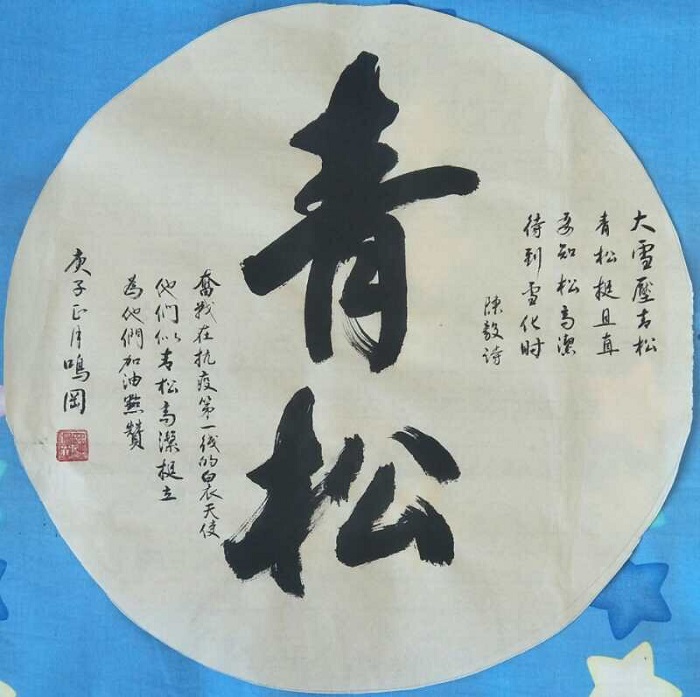 大雪壓青松
青松挺且直
要知松高潔
待到雪化时
陈毅诗
青松
奮战在抗疫第一线的白衣天使
他们似青松高潔挺立
為他們加油點贊
庚子正月鳴岡